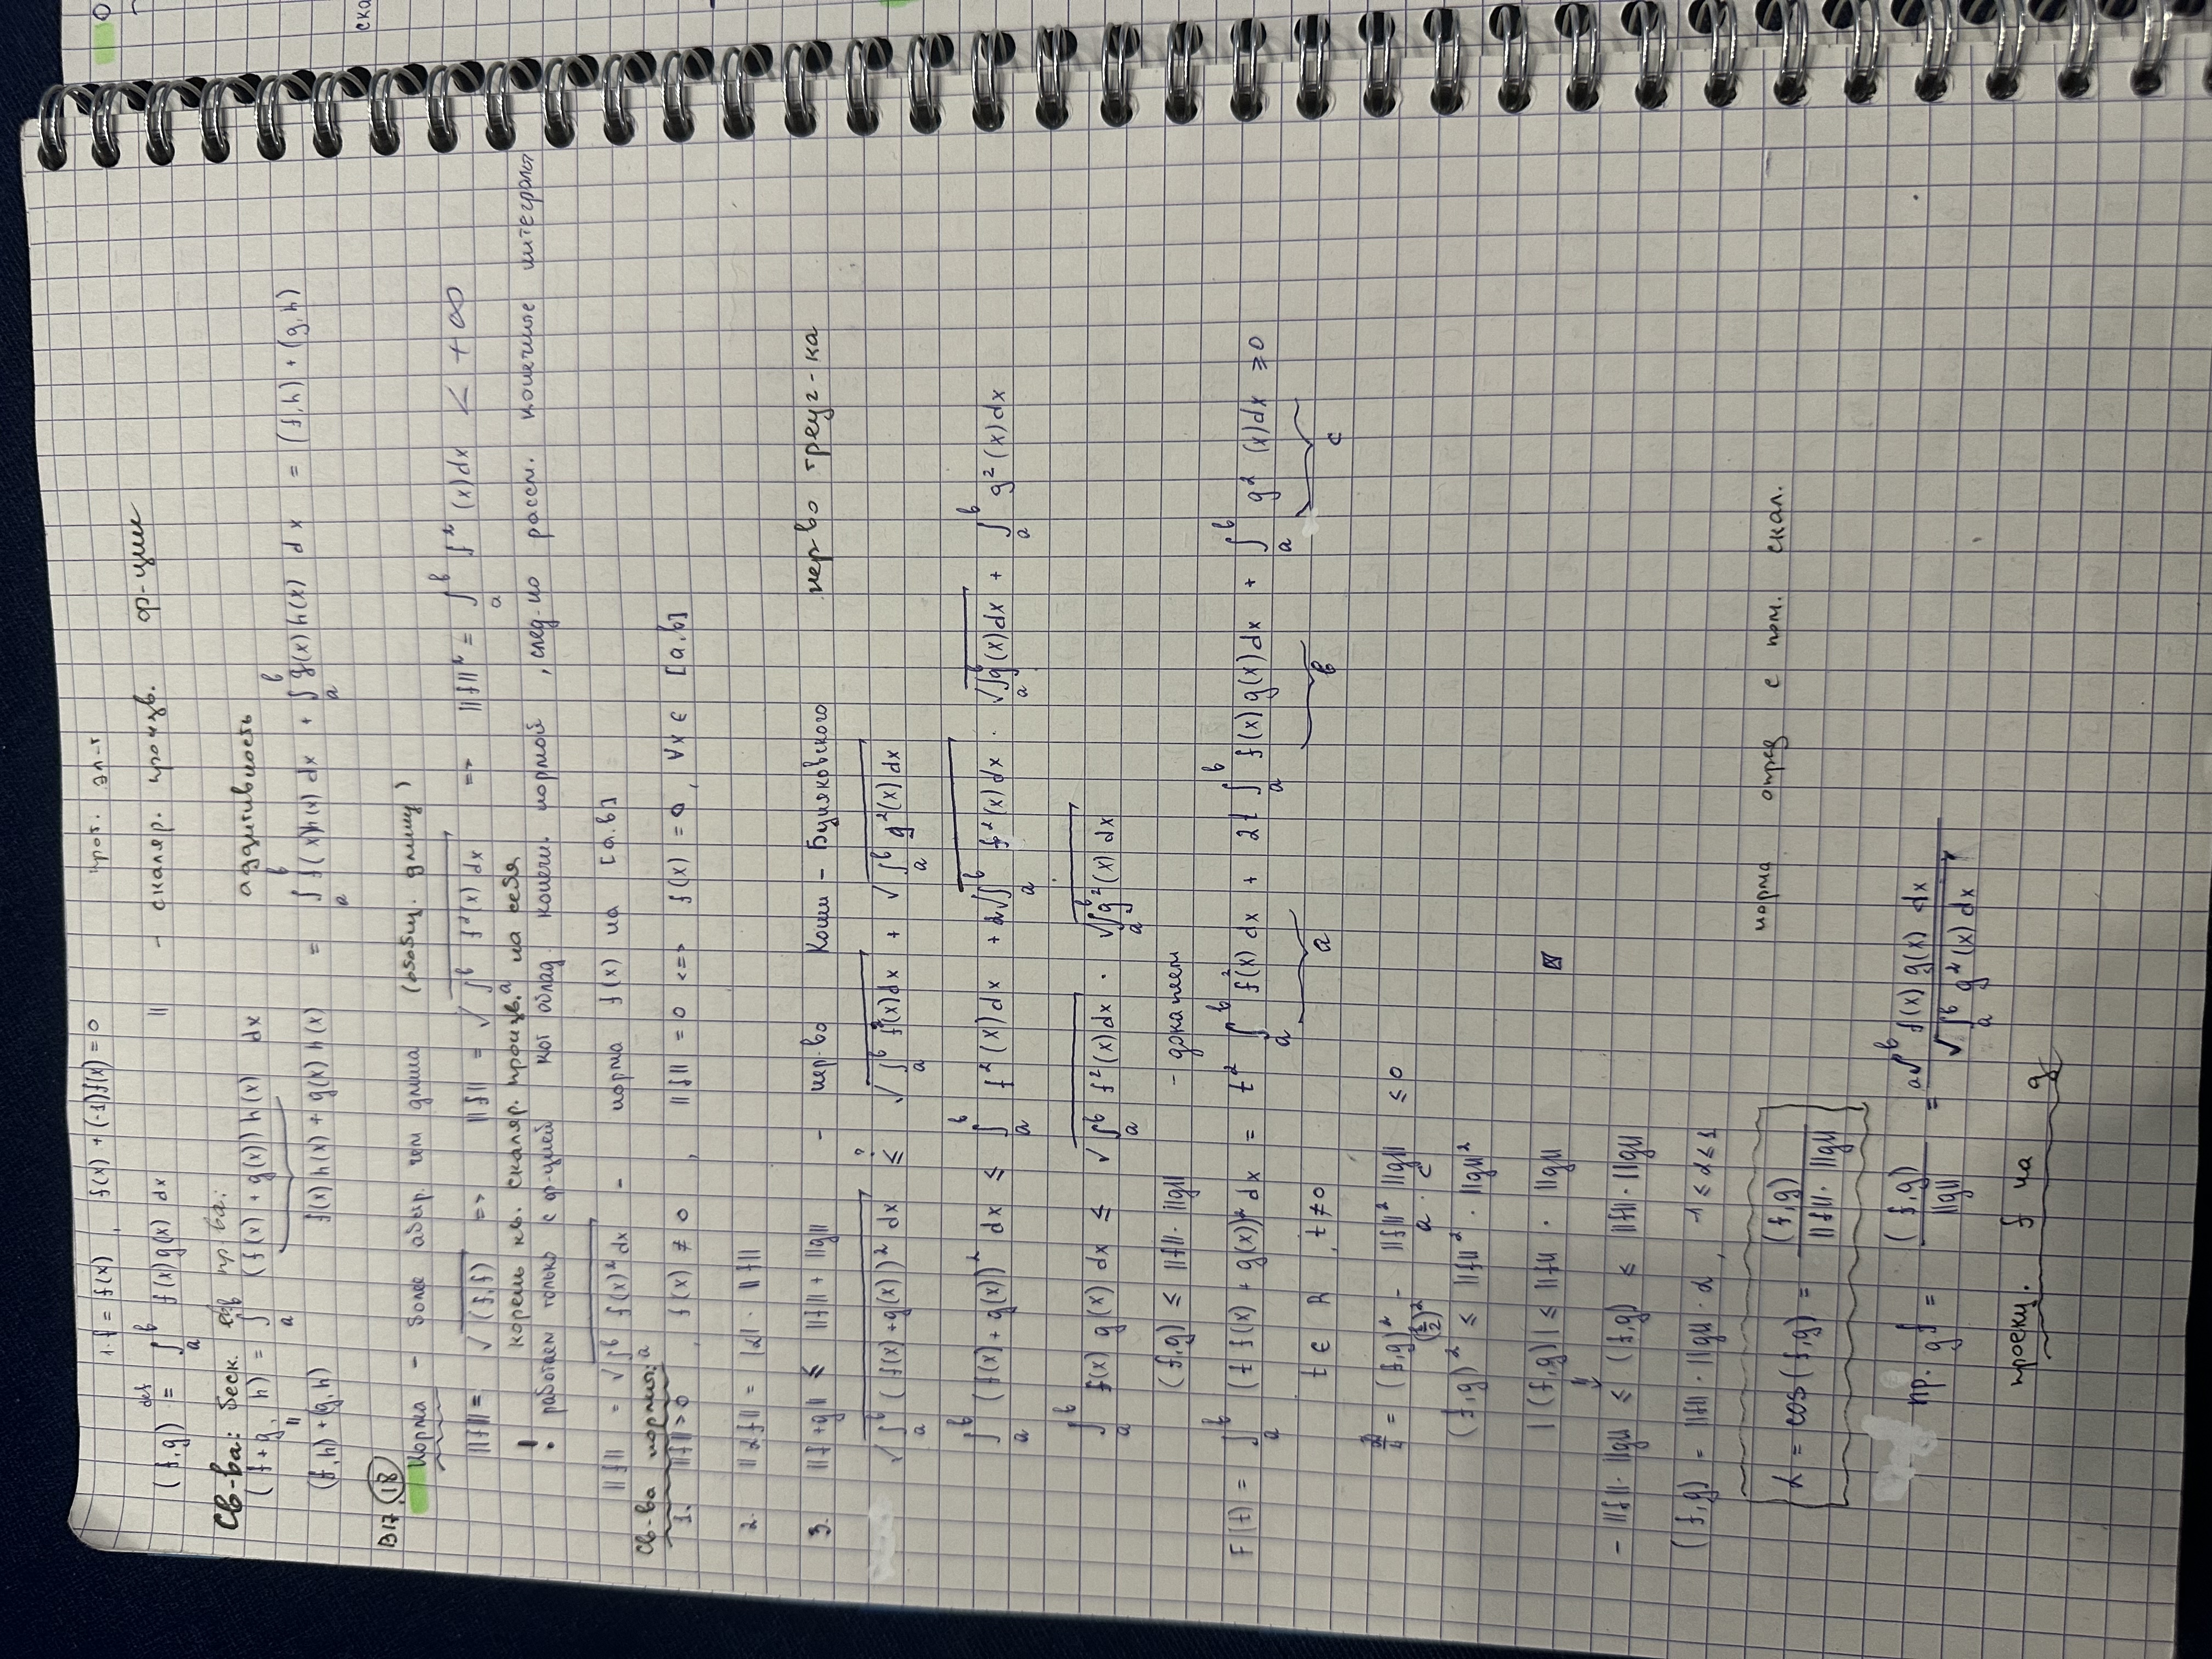 1·f = f(x) , f(x) + (-1)f(x) = 0 прот. эл-т
(f,g) def= ∫_a^b f(x)g(x) dx || - скаляр. произв. ф-ции
Св-ва: беск. евкл пр-ва:
(f+g, h) = ∫_a^b (f(x) + g(x)) h(x) dx аддитивность
||
(f,h)+(g,h) f(x)h(x) + g(x)h(x) = ∫_a^b f(x)h(x) dx + ∫_a^b g(x)h(x) dx = (f,h) + (g,h)
В17, 18
Норма - более абстр. чем длина (обобщ. длину)
||f|| = √(f,f) => ||f|| = √∫_a^b f²(x) dx => ||f||² = ∫_a^b f²(x)dx < +∞
корень кв. скаляр. произв. на себя
! работаем только с ф-цией кот облад. конечн. нормой , след-но рассм. конечные интегралы
||f|| = √∫_a^b f(x)² dx - норма f(x) на [a.b]
Св-ва нормы:
1. ||f||>0 , f(x) ≠ 0 , ||f|| = 0 <=> f(x) = 0, ∀x ∈ [a,b]
2. ||αf|| = |α| · ||f||
3. ||f+g|| ≤ ||f|| + ||g|| - нер-во Коши - Буняковского нер-во треуг-ка
√∫_a^b (f(x)+g(x))² dx ≤? √∫_a^b f²(x)dx + √∫_a^b g²(x)dx
∫_a^b (f(x)+g(x))² dx ≤ ∫_a^b f²(x)dx + 2√∫_a^b f²(x)dx · √∫_a^b g²(x)dx + ∫_a^b g²(x)dx
∫_a^b f(x) g(x) dx ≤ √∫_a^b f²(x)dx · √∫_a^b g²(x) dx
(f,g) ≤ ||f|| · ||g|| - докажем
F(t) = ∫_a^b (t f(x) + g(x))² dx = t² ∫_a^b f²(x) dx + 2t ∫_a^b f(x)g(x)dx + ∫_a^b g²(x)dx ≥ 0
a b c
t ∈ R , t ≠ 0
D/4 = (f,g)² - ||f||² ||g|| ≤ 0
(b/2)² a · c
(f,g)² ≤ ||f||² · ||g||²
|(f,g)| ≤ ||f|| · ||g||
⇓
- ||f|| · ||g|| ≤ (f,g) ≤ ||f|| · ||g||
(f,g) = ||f|| · ||g|| · α , -1 ≤ α ≤ 1
норма опред с пом. скал.
α = cos(f,g) = (f,g) / ||f|| · ||g||
пр. _g f = (f,g) / ||g|| = ∫_a^b f(x) g(x) dx / √∫_a^b g²(x) dx
проекц. f на g